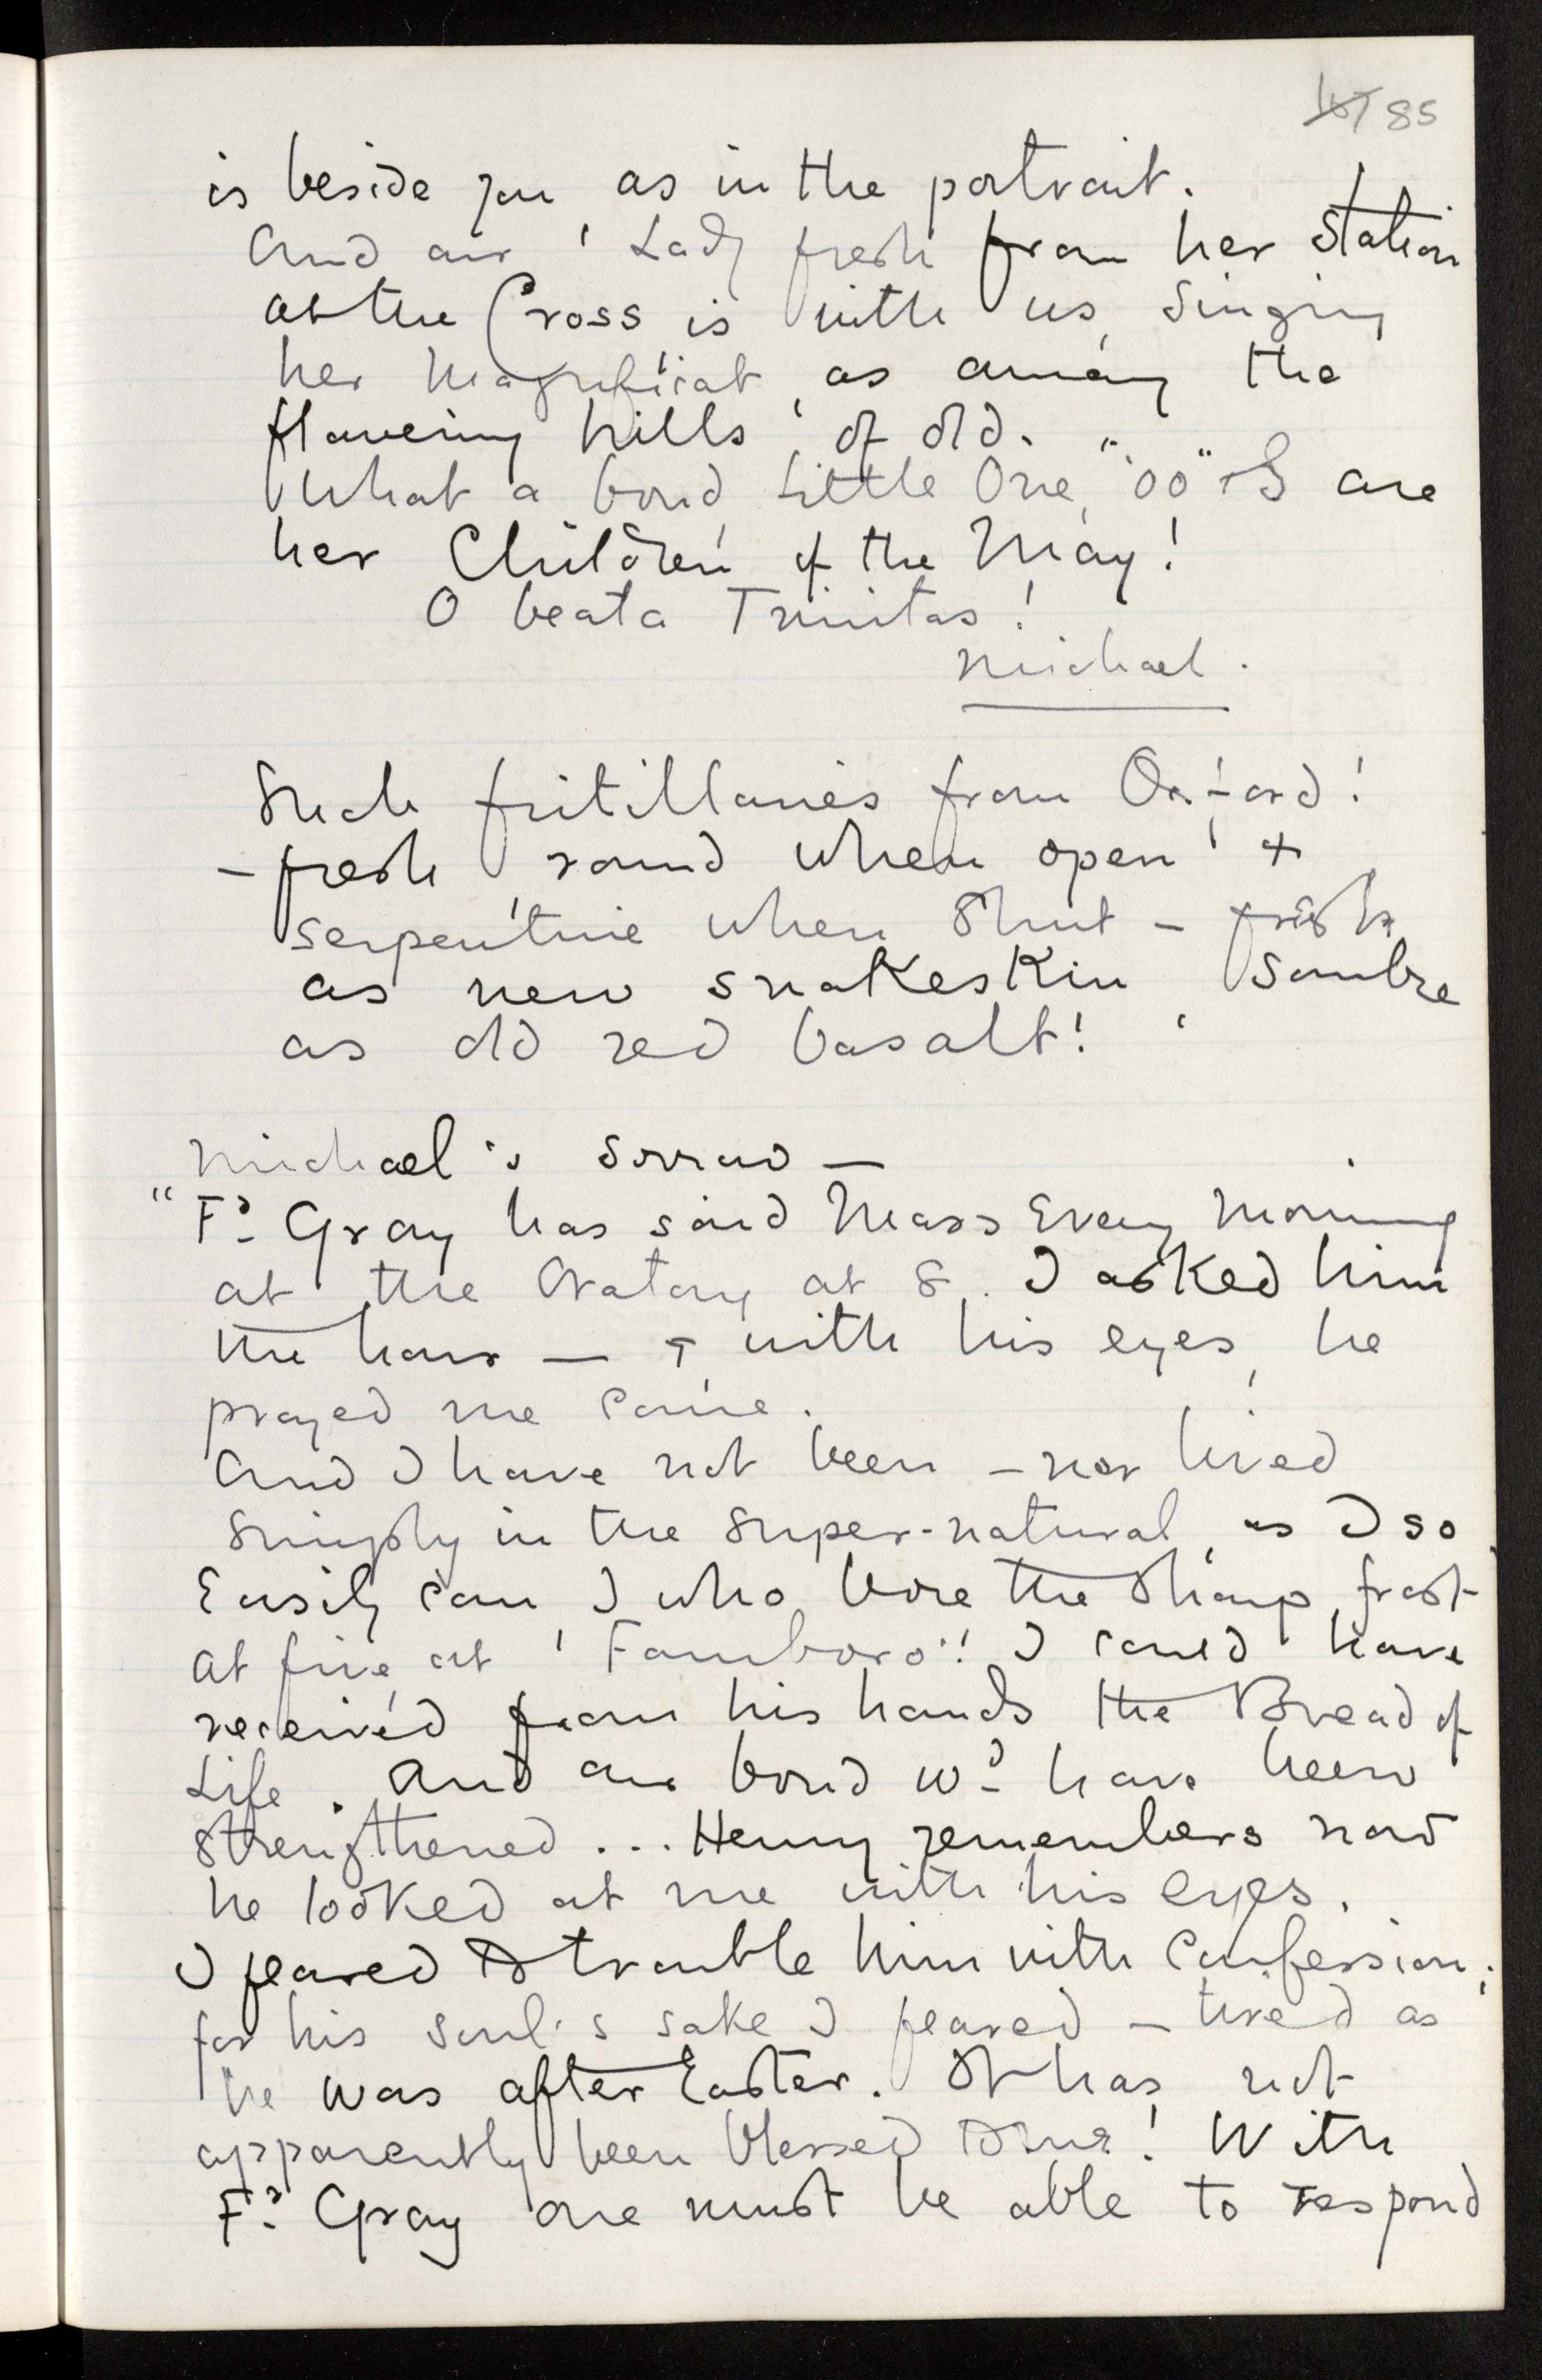 85
is beside you, as in the portrait.
And our Lady fresh from her station
at the Cross is with us, singing
her Magnificat, as among the
flowering hills, of old.
What a bond, Little One, "oo" & I are
her Children of the May!
O beata Trinitas!
Michael.
Such fritillaries from Oxford!
- fresh, round when open, +
serpentine when shut - fresh
as new snakeskin, sombre
as old red basalt!
Michael's sorrow —
"Fr. Gray has said Mass every morning
at the Oratory at 8. I asked him
the hour — & with his eyes, he
prayed me come.
And I have not been - nor lived
simply in the super-natural, as I so
easily can, I who bore the sharp frost
at five, at Farnboro'! I could have
received from his hands the Bread of
Life. And our bond wd have been
strengthened ... Henry remembers how
he looked at me with his eyes.
I feared to trouble him with Confession;
for his soul's sake I feared - tired as
he was after Easter. It has not
apparently been blessed to me! With
Fr. Gray one must be able to respond